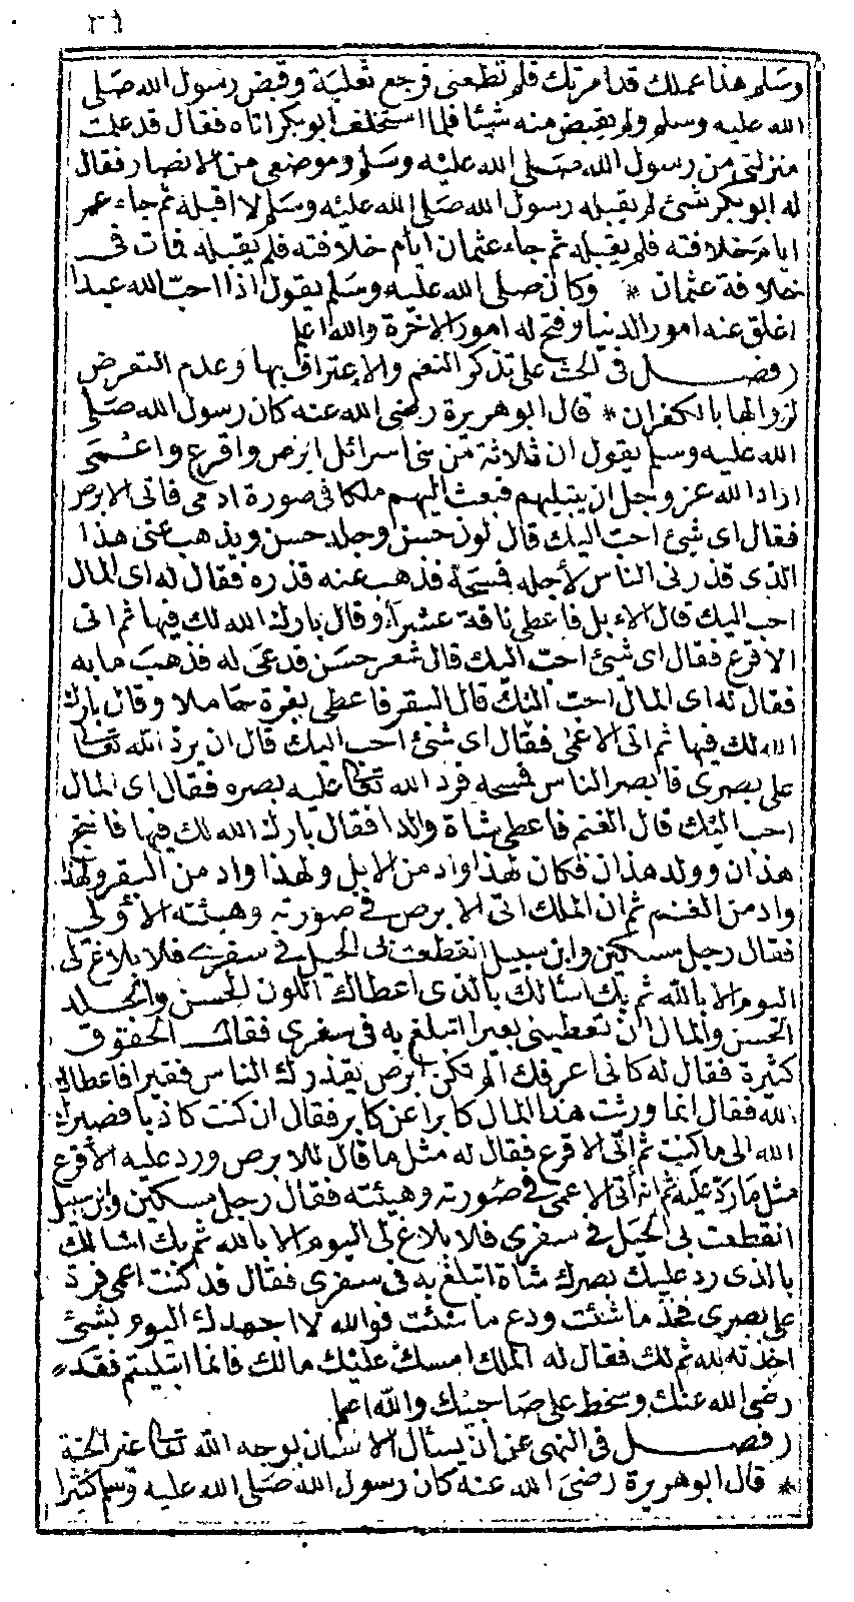 ٣٦
وسلم هذا عملك قد امرتك فلم تطعني فرجع ثعلبة وقبض رسول الله صلى
الله عليه وسلم ولم يقبض منه شيئا فلما استخلف ابو بكر اتاه فقال قد علمت
منزلتي من رسول الله صلى الله عليه وسلم وموضعي من الانصار فقال
له ابو بكر شئ لم يقبله رسول الله صلى الله عليه وسلم لا اقبله ثم جاء عمر
ايام خلافته فلم يقبله ثم جاء عثمان ايام خلافته فلم يقبله فمات في
خلافة عثمان * وكان صلى الله عليه وسلم يقول اذا احب الله عبدا
اغلق عنه امور الدنيا وفتح له امور الاخرة والله اعلم
فصل في الحث على تذكر النعم والاعتراف بها وعدم التعرض
لزوالها بالكفران * قال ابو هريرة رضي الله عنه كان رسول الله صلى
الله عليه وسلم يقول ان ثلاثة من بني اسرائل ابرص واقرع واعمى
اراد الله عز وجل ان يبتليهم فبعث اليهم ملكا في صورة ادمي فاتى الابرص
فقال اى شئ احب اليك قال لون حسن وجلد حسن ويذهب عني هذا
الذى قذرني الناس لأجله فمسحه فذهب عنه قذره فقال له اى المال
احب اليك قال الابل فاعطي ناقة عشراء وقال بارك الله لك فيها ثم اتى
الاقرع فقال اى شئ احب اليك قال شعر حسن قدعى له فذهب ما به
فقال له اى المال احب اليك قال البقر فاعطي بقرة حاملا وقال بارك
الله لك فيها ثم اتى الاعمى فقال اى شئ احب اليك قال ان يرد الله تعالى
على بصرى فابصر الناس فمسحه فرد الله تعالى عليه بصره فقال اى المال
احب اليك قال الغنم فاعطي شاة والدا فقال بارك الله لك فيها فانتج
هذان وولد هذا فكان لهذا واد من الابل ولهذا واد من البقر ولهذا
واد من الغنم ثم ان الملك اتى الابرص في صورته وهيئته الأولى
فقال رجل مسكين وابن سبيل انقطعت بى الحبل في سفرى فلا بلاغ لى
اليوم الا بالله ثم بك اسألك بالذى اعطاك اللون الحسن والجلد
الحسن والمال ان تعطيني بعيرا اتبلغ به فى سفرى فقال الحقوق
كثيرة فقال له كانى اعرفك الم تكن ابرص يقذرك الناس فقيرا فاعطاك
الله فقال انما ورثت هذا المال كابرا عن كابر فقال ان كنت كاذبا فصيرك
الله الى ما كنت ثم اتى الاقرع فقال له مثل ما قال للابرص ورد عليه الأقرع
مثل ما رد عليه ثم انه أتى الاعمى في صورته وهيئته فقال رجل مسكين وابن سبيل
انقطعت بى الحبل في سفرى فلا بلاغ لى اليوم الا بالله ثم بك اسالك
بالذى رد عليك بصرك شاة اتبلغ به فى سفرى فقال قد كنت اعمى فرد
على بصرى فخذ ما شئت ودع ما شئت فوالله لا اجهدك اليوم بشئ
اخذته لله فقال له الملك امسك عليك مالك فانما ابتليتم فقد
رضى الله عنك وسخط على صاحبيك والله اعلم
فصل في النهي عن ان يسأل الانسان بوجه الله تعالى غير الجنة
* قال ابو هريرة رضى الله عنه كان رسول الله صلى الله عليه وسلم كثيرا